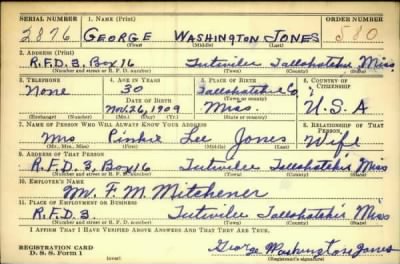 SERIAL NUMBER 1. NAME (Print) ORDER NUMBER
2876 GEORGE WASHINGTON JONES 580
(First) (Middle) (Last)
2. ADDRESS (Print)
R.F.D. 3, Box 16 Tutwiler Tallahatchie Miss.
(Number and street or R. F. D. number) (Town) (County) (State)
3. TELEPHONE 4. AGE IN YEARS 5. PLACE OF BIRTH 6. COUNTRY OF CITIZENSHIP
None 30 Tallahatchie Co,
DATE OF BIRTH (Town or county)
Nov. 26, 1909 Miss. U.S.A
(Exchange) (Number) (Mo.) (Day) (Yr.) (State or country)
7. NAME OF PERSON WHO WILL ALWAYS KNOW YOUR ADDRESS 8. RELATIONSHIP OF THAT PERSON
Mrs Pinkie Lee Jones Wife
(Mr., Mrs., Miss) (First) (Middle) (Last)
9. ADDRESS OF THAT PERSON
R.F.D. 3, Box 16 Tutwiler Tallahatchie Miss
(Number and street or R. F. D. number) (Town) (County) (State)
10. EMPLOYER'S NAME
Mr. F. M. Mitchener
11. PLACE OF EMPLOYMENT OR BUSINESS
R.F.D. 3 Tutwiler Tallahatchie Miss
(Number and street or R. F. D. number) (Town) (County) (State)
I AFFIRM THAT I HAVE VERIFIED ABOVE ANSWERS AND THAT THEY ARE TRUE.
REGISTRATION CARD George Washington Jones
D. S. S. Form 1 (over) (Registrant's signature)